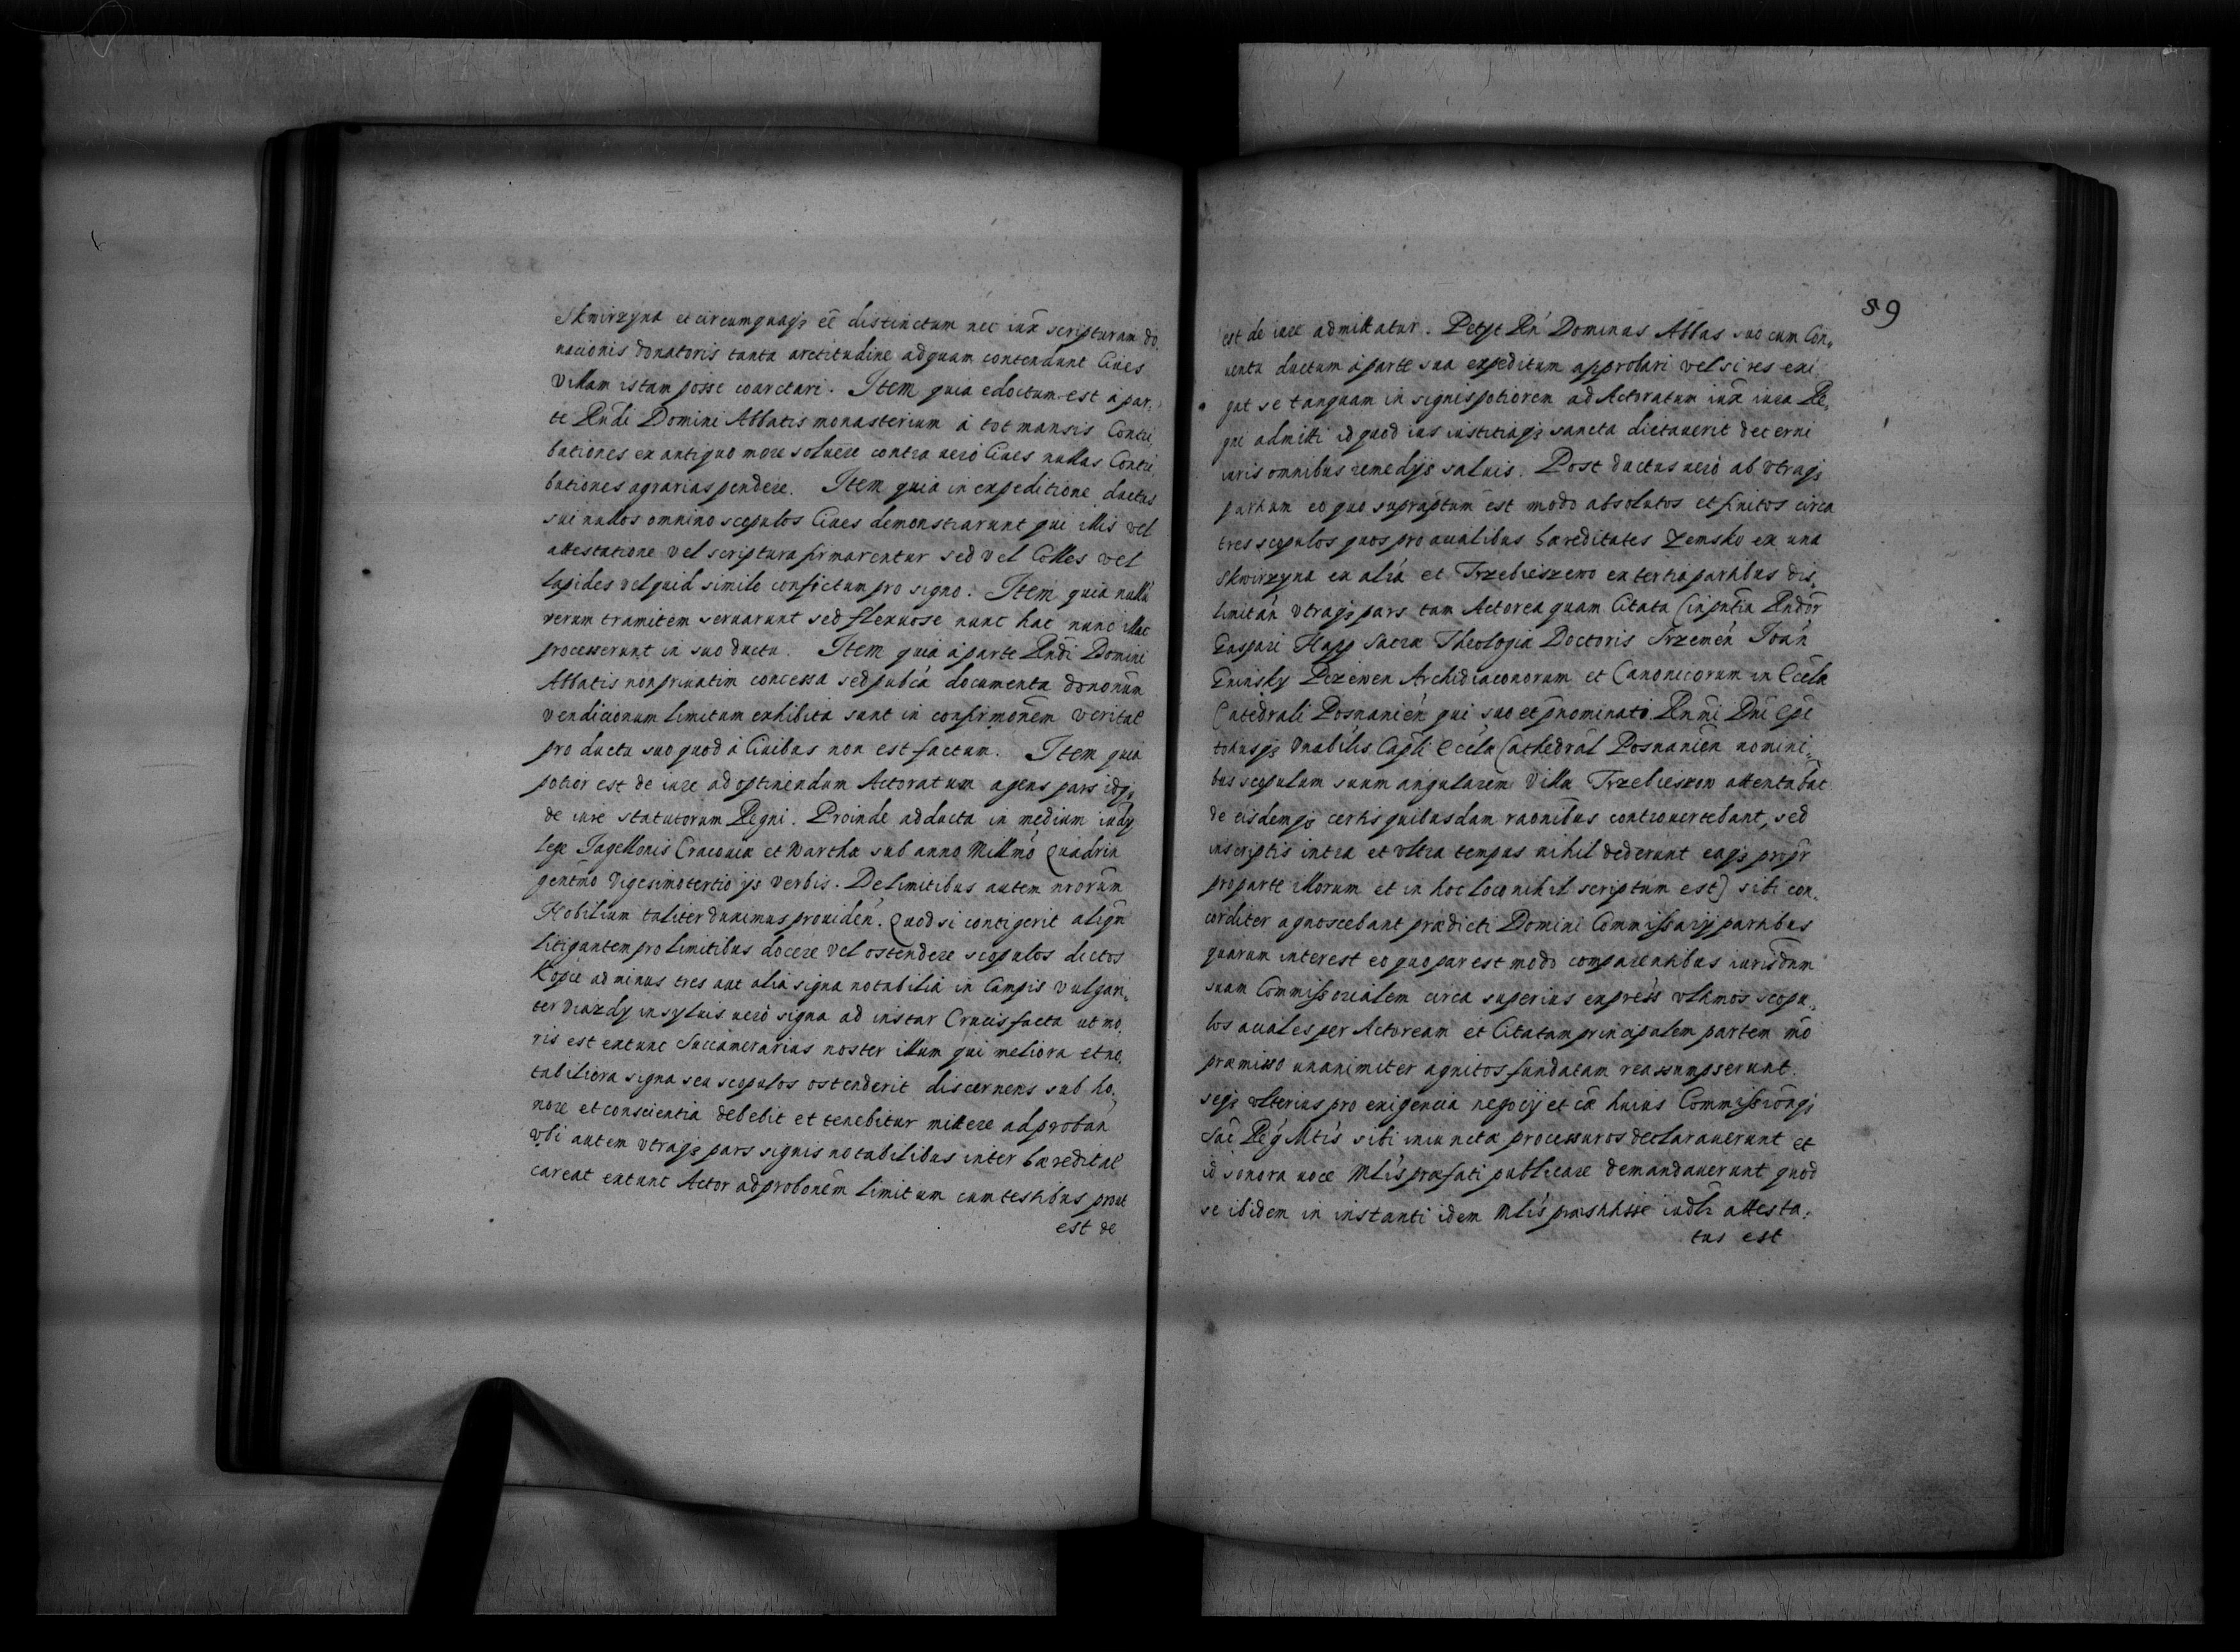 Skwirzyna et circumquaqȝ eē distinctum nec iux̄ scripturam do,
nacionis donatoris tanta arctitudine ad quam contendunt Ciues
Villam istam posse coarctari. Item quia edoctum est à par,
te Rndi Domini Abbatis monasterium à tot mansis Contri,
butiones ex antiquo more soluere contra uerò Ciues nullas Contri,
butiones agrarias pendere. Item quia in expeditione ductus
sui nullos omnino scopulos Ciues demonstrarunt qui illis vel
attestatione vel scriptura firmarentur sed vel Colles vel
lapides vel quid simile confictum pro signo. Item quia nullū
rerum tramitem seruarunt sed flexuose nunc hac nunc illac
processerunt in suo ductu. Item quia à parte Rndi Domini
Abbatis non priuatim concessa sed pubcā documenta dononūm
vendicionum limitum exhibita sunt in confirmonēm veritat
pro ductu suo quod à Ciuibus non est factum. Item quia
potior est de iure ad optinendum Actoratum agens pars idqȝ
de iure statutorum Regni. Proinde adducta in medium
lege Jagellonis Cracouiæ et Warthæ sub anno Millmo Quadrin
gentmo Vigesimotertio ijs verbis. De limitibus autem nrorūm
Nobilium taliter duximus prouiden. Quod si contigerit aliqm̄
litigantem pro limitibus docere vel ostendere scopulos dictos
Kopcé ad minus tres aut alia signa notabilia in Campis vulgari,
ter Viazdy in syluis uerò signa ad instar Crucis facta ut mo,
ris est extunc Succamerarius noster illum qui meliora et no,
tabiliora signa seu scopulos ostenderit discernens sub ho,
nore et conscientia debebit et tenebitur mittere ad proban
vbi autem vtraqȝ pars signis notabilibus inter hæreditat
careat extunc Actor ad probonēm limitum cum testibus prout
est de
89
est de iure admittatur. Petyt Rn̄ Dominus Abbas suo cum Con,
uentu ductum à parte sua expeditum approbari vel si res exi
gat se tanquam in signis potiorem ad Actoratum iux̄ iura Re,
gni admitti id quod ius iustitiaqȝ sancta dictauerit decerni
iuris omnibus remedijs saluis. Post ductus uerò ab vtraqȝ
partium eo quo supraptum est modo absolutos et finitos circa
tres scopulos quos pro acialibus hæreditates Zemsko ex una
Skwirzyna ex aliā et Trzebieszewo ex tertia partibus dis,
limitān vtraqȝ pars tam Actorea quam Citata (in pntia Rndōr
Gaspari Happ Sacræ Theologiæ Doctoris Srzemēn Joān
Gninsky Pczewen Archidiaconorum et Canonicorum in Eccla
Catedrali Posnaniēn qui suo et pnominato Rnmi Dni Epi
totiusqȝ Vnabilis Capli Eccla Cathedral Posnaniēn nomini,
bus scopulum suum angularem Villæ Trzebieszow attentabat
de eisdemqȝ certis quibusdam raonibus controuertebant, sed
inscriptis intra et vltra tempus nihil dederunt eaqȝ propr
pro parte illorum et in hoc loco nihil scriptum est) sibi con,
corditer agnoscebant prædicti Domini Commissarij partibus
quarum interest eo quo par est modo comparentibus iurisdnm
suam Commissorialem circa superius express vltimos scopu,
los aciales per Actoream et Citatam principalem partem mō
præmisso unanimiter agnitos fundatam reassumpserunt.
seqȝ vlterius pro exigencia negocij et eā huius Commissiōnqȝ
Sac Reg Mtis sibi iniunctæ processuros declarauerunt et
id sonora uoce Mtis præfati publicare demandauerunt quod
se ibidem in instanti idem Mtis præstitisse iudli attesta,
tus est